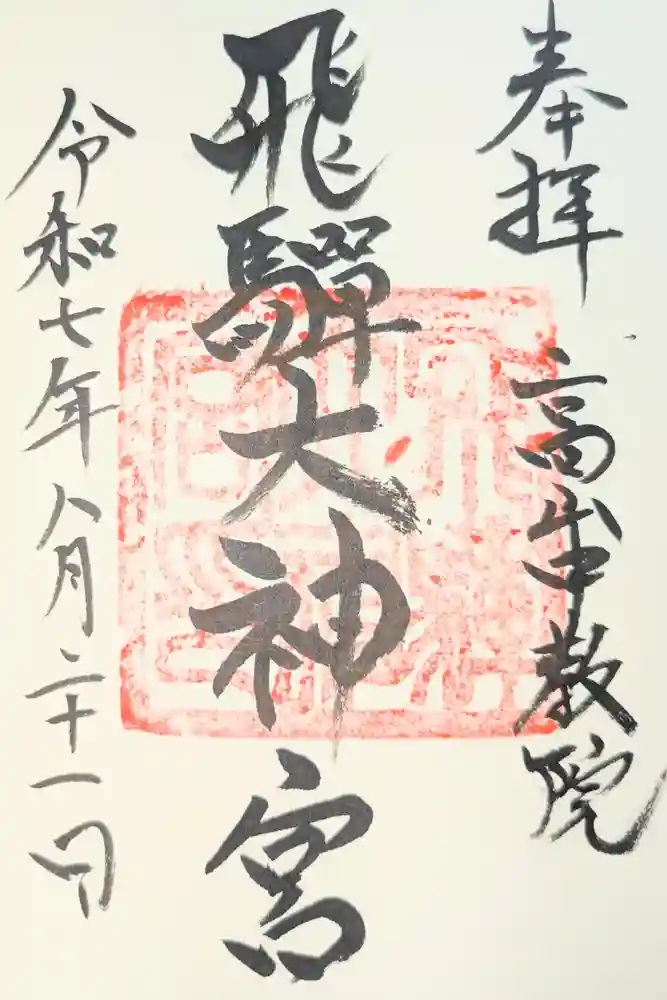 奉拝 高山教院
飛驒大神宮
令和七年八月二十一日